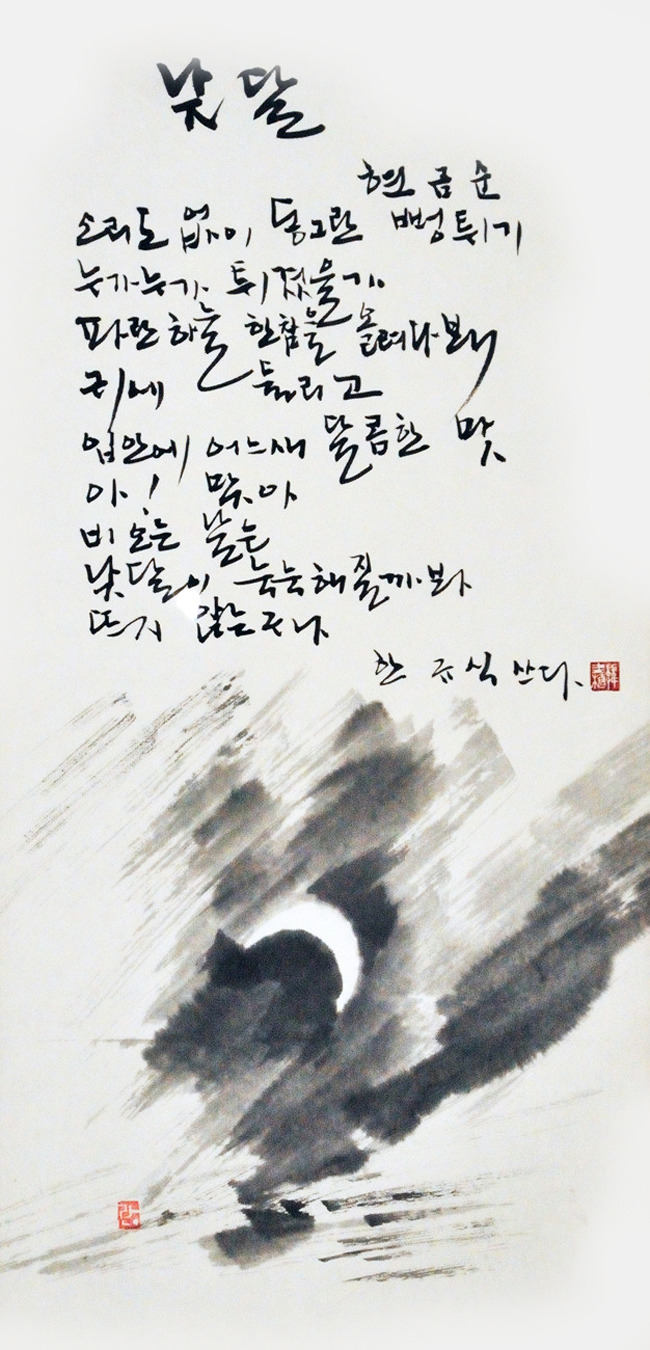 낮달
현금순
소리도 없이 동그란 뻥튀기
누가누가 튀겼을까
파란하늘 한참을 올려다보니
귀에 들리고
입안에 어느새 달콤한 맛
아! 맞아
비오는 날은
낮달이 눅눅해질까봐
뜨지 않는구나
한 규식 쓰다